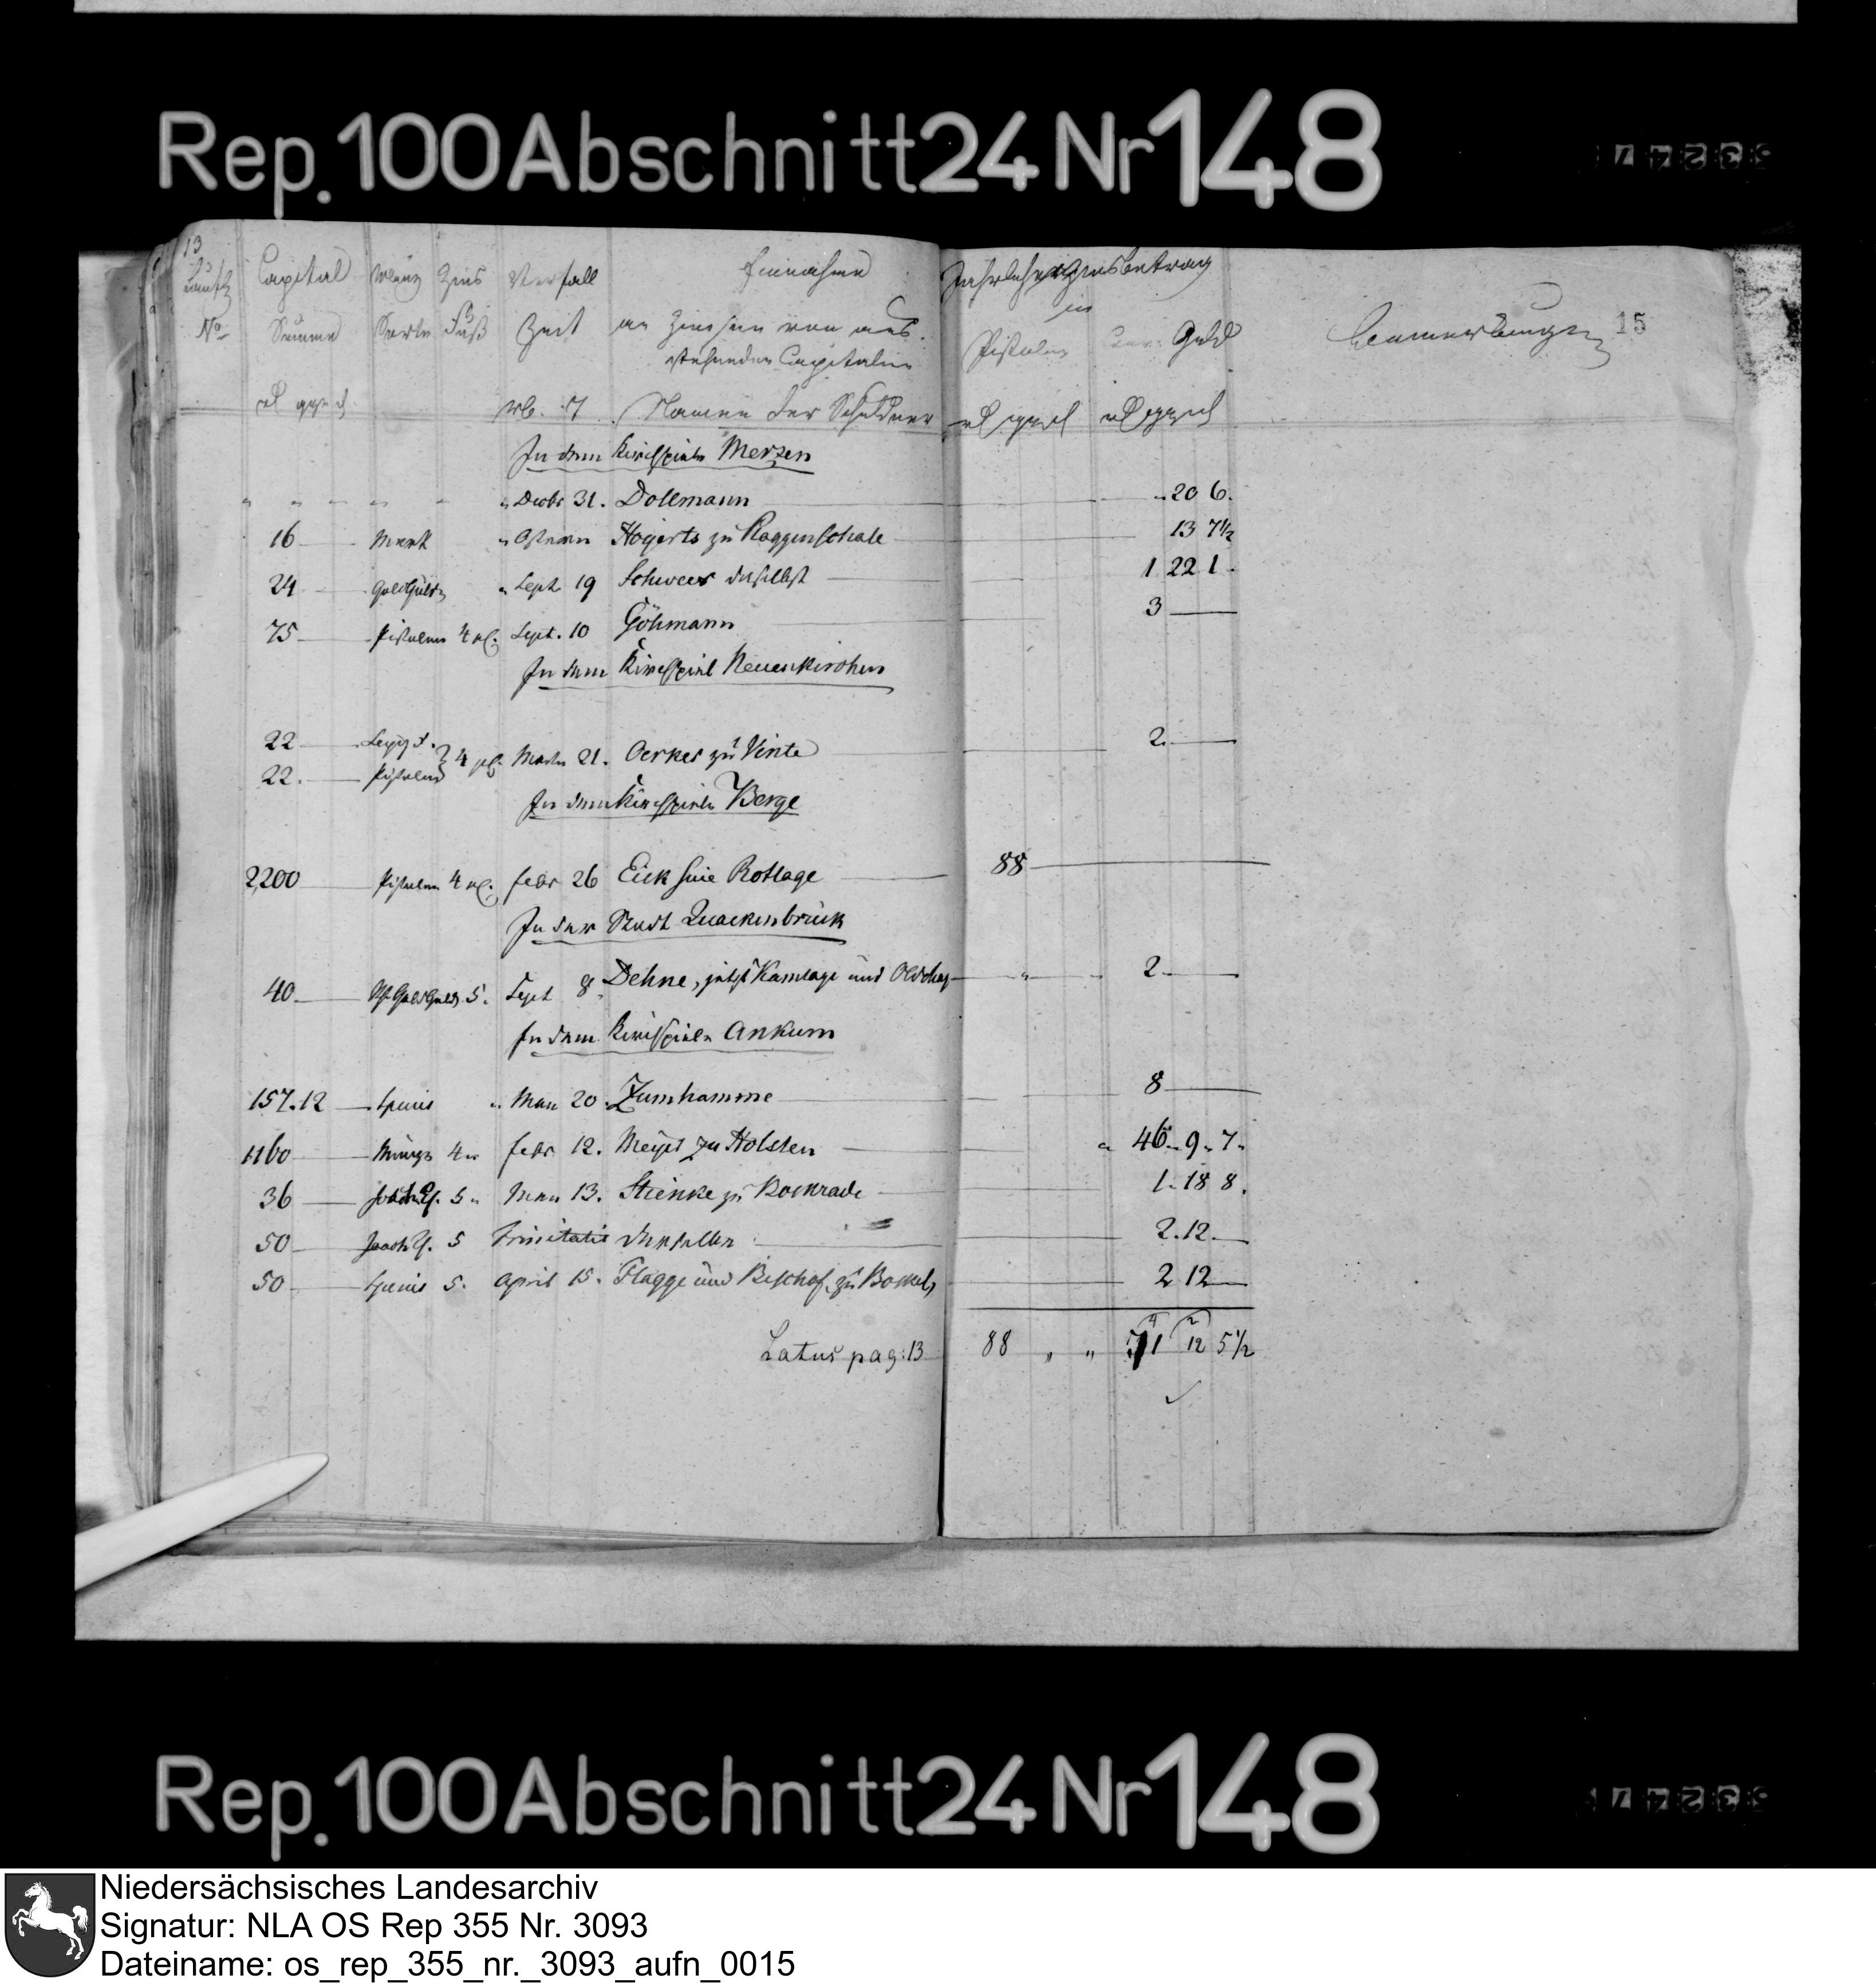 Rep. 100 Abschnitt 24 Nr 148
53247
13
Laufd Capital Münz Zins Verfall Einnahme Jährlicher Zinsbetrag
in
No. Summe Sorte Fuß Zeit an Zinsen von aus- Pistolen Cour. Geld Bemerkungen 15
stehenden Capitalien
Namen der Schuldner
In dem Kirchspiele Merzen
" " " " " " Decbr 31. Dollmann 20 6.
16 Mark " Ostern Högerts zu Raggenschale 13 7½
24 Goldguld " Sept 19 Schweer daselbst 1 22 1
75 Pistolen 4 Sept. 10 Göhmann 3
In dem Kirchspiel Neuenkirchen
22 2
4 21. Oerker zu Vinte
22. Pistolen
In dem Kirchspiele Berge
2200 Pistolen 4 Febr 26 Eick sive Rotlage 88
In der Stadt Quackenbrück
40 Goldguld 5. Sept 8 Dehne, jetzt Kamlage und 2
In dem Kirchspiele Ankum
157.12 " Mai 20. Zumhamme 8
1160 Münze 4 Febr 12. Meyer zu Holsten " 46. 9. 7.
36 5 Mai 13. Steinke zu Bockrade 1. 18 8.
50 5 Trinitatis derselbe 2. 12
50 5. April 15. Flagge und Bischof zu Bockel 2 12
4 2
Latus pag: 13 88 " " 71 12 5½
Rep. 100 Abschnitt 24 Nr 148
53247
Niedersächsisches Landesarchiv
Signatur: NLA OS Rep 355 Nr. 3093
Dateiname: os_rep_355_nr._3093_aufn_0015